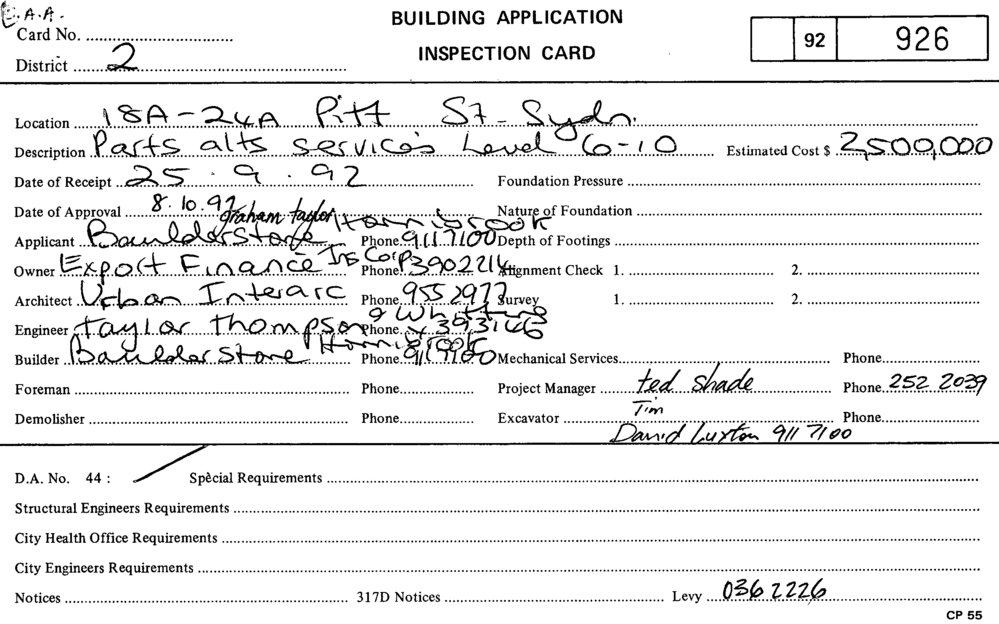 E.A.A.
BUILDING APPLICATION
Card No.
92 926
INSPECTION CARD
District 2
Location 18A-24A Pitt St- Sydn.
Description Parts alts services Level 6-10 Estimated Cost $ 2,500,000
Date of Receipt 25.9.92 Foundation Pressure
Date of Approval 8.10.92 Nature of Foundation
graham taylor
Applicant Baulderstone Hornibrook Phone 9117100 Depth of Footings
Owner Export Finance Ins Corp Phone 3902214 Alignment Check 1. 2.
Architect Urban Interarc Phone 9552977 Survey 1. 2.
Engineer Taylor Thompson & Whitting Phone
Builder Baulderstone Hornibrook Phone 9117100 Mechanical Services Phone
Foreman Phone Project Manager ted shade Phone 252 2039
Demolisher Phone Excavator Tim Phone
David Luxton 911 7100
D.A. No. 44 : Special Requirements
Structural Engineers Requirements
City Health Office Requirements
City Engineers Requirements
Notices 317D Notices Levy 0362226
CP 55